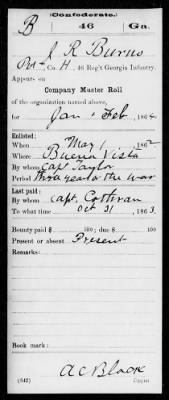 (Confederate.)
B 46 Ga.
J R Burns
Pvt, Co. H, 46 Reg't Georgia Infantry.
Appears on
Company Muster Roll
of the organization named above,
for Jan & Feb, 1864.
Enlisted:
When May 1, 1862
Where Buena Vista
By whom Capt Taylor
Period three years or the war
Last paid:
By whom Capt. Cothran
To what time Oct 31, 1863.
Bounty paid $ 100; due $ 100
Present or absent Present
Remarks:
Book mark:
A C Black
(642) Copyist.